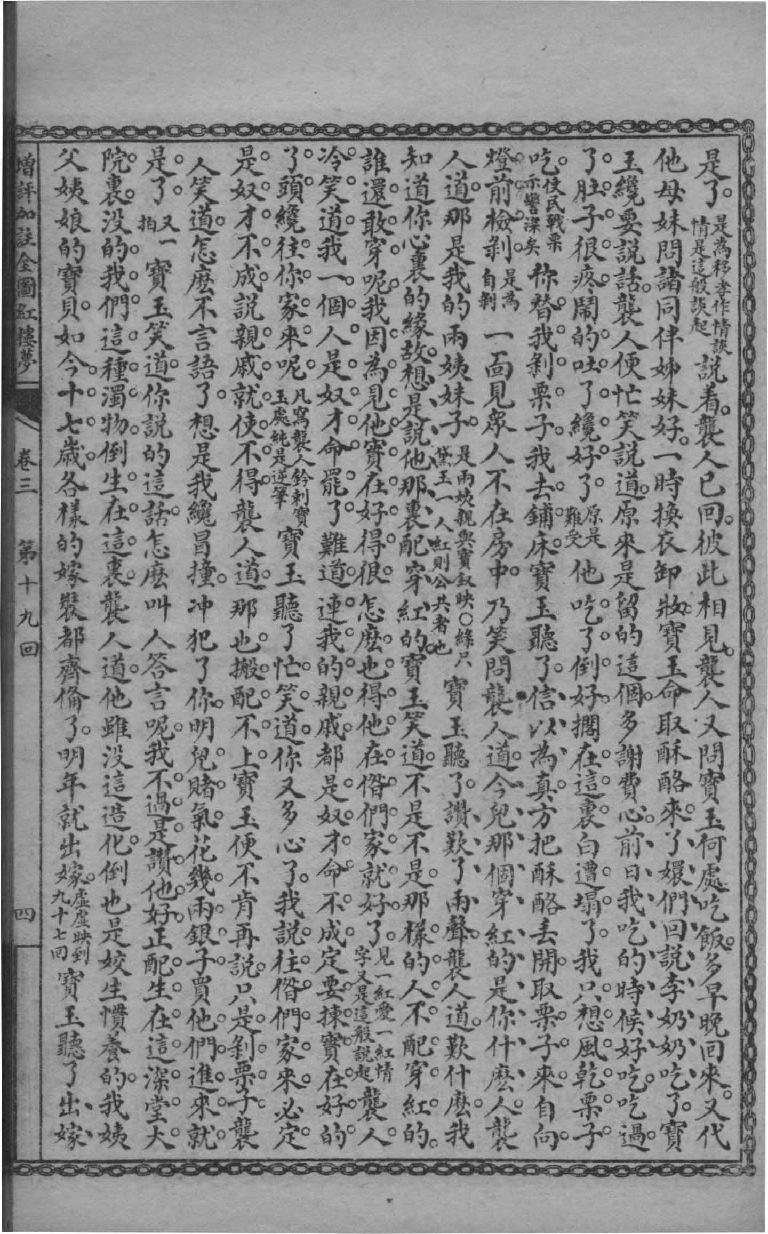 是了是為移孝作情談情是這般談起說着襲人已回彼此相見襲人又問寶玉何處吃飯多早晚回來又代
他母妹問諸同伴姊妹好一時換衣卸妝寶玉命取酥酪來了嬛們回說李奶奶吃了寶
玉纔要說話襲人便忙笑說道原來是留的這個多謝費心前日我吃的時候好吃吃過
了肚子很疼鬧的吐了纔好了原是難受他吃了倒好擱在這裏白遭塌了我只想風乾栗子
吃使民戰栗示警深矣你替我剝栗子我去鋪床寶玉聽了信以為真方把酥酪丟開取栗子來自向
燈前檢剝是為自剝一面見眾人不在房中乃笑問襲人道今兒那個穿紅的是你什麽人襲
人道那是我的兩姨妹子是兩姨親與寶釵映○絳只黛玉一人紅則公共者也寶玉聽了讚歎了兩聲襲人道歎什麽我
知道你心裏的緣故想是說他那裏配穿紅的寶玉笑道不是不是那樣的人不配穿紅的
誰還敢穿呢我因為見他實在好得很怎麽也得他在偺們家就好了見一紅愛一紅情字又是這般說起襲人
冷笑道我一個人是奴才命罷了難道連我的親戚都是奴才命不成定要揀實在好的
了頭纔往你家來呢凡寫襲人鈐刺寶玉處純是逆筆寶玉聽了忙笑道你又多心了我說往偺們家來必定
是奴才不成說親戚就使不得襲人道那也搬配不上寶玉便不肯再說只是剝栗子襲
人笑道怎麽不言語了想是我纔冒撞冲犯了你明兒賭氣花幾兩銀子買他們進來就
是了又一拍寶玉笑道你說的這話怎麽叫人答言呢我不過是讚他好正配生在這深堂大
院裏没的我們這種濁物倒生在這裏襲人道他雖没這造化倒也是姣生慣養的我姨
父姨娘的寶貝如今十七歲各樣的嫁裝都齊俻了明年就出嫁虛虛映到九十七回寶玉聽了出嫁
增評加註全圖紅樓夢 卷三 第十九回 四